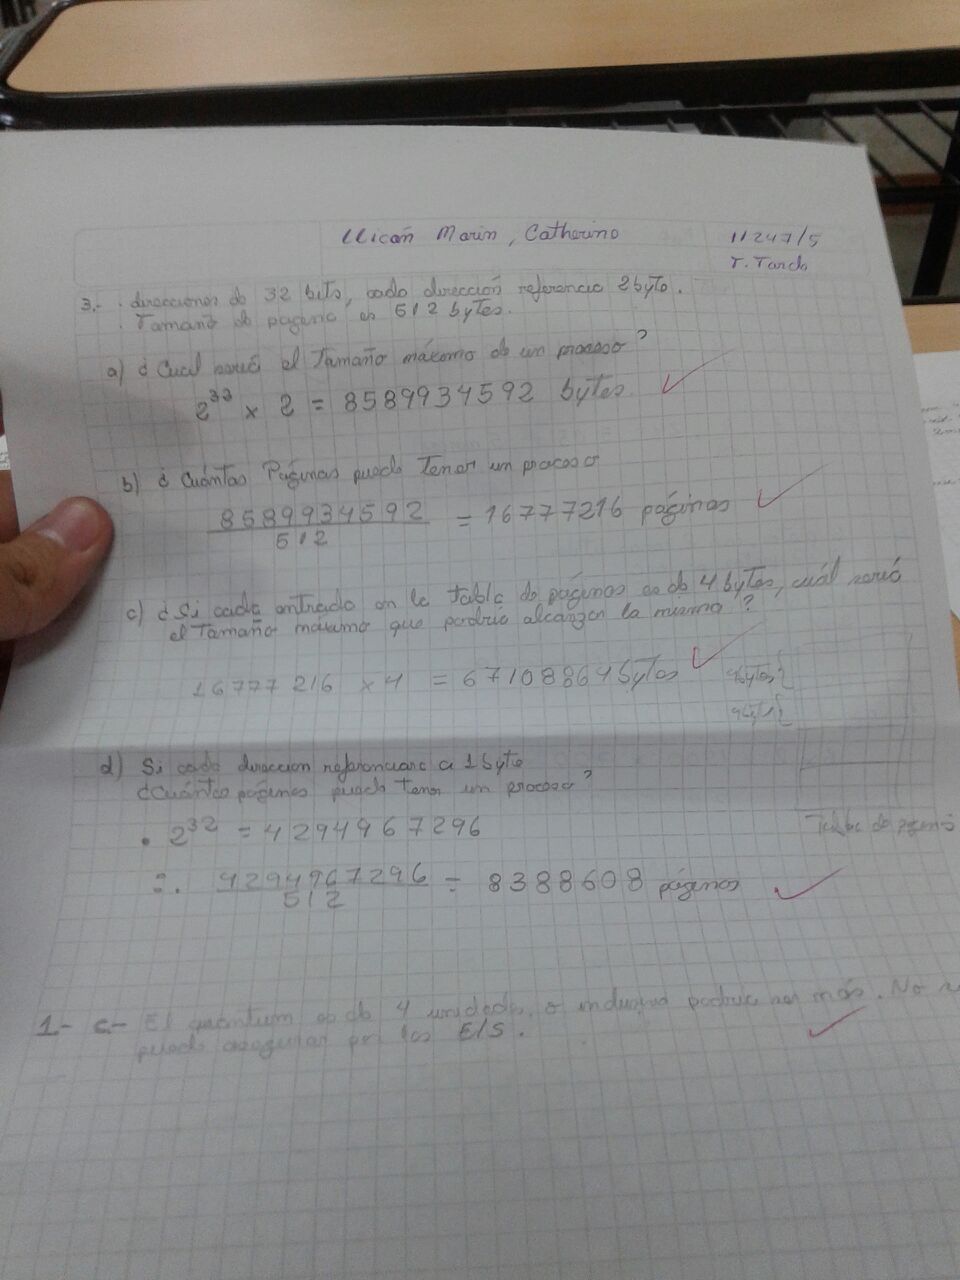 Ucañ Marin, Catherine
11247/5
T. Tarde
3.- . direcciones de 32 bits, cada dirección referencia 2byte.
. Tamaño de página es 512 bytes.
a) ¿Cual será el Tamaño máximo de un proceso?
2^32 x 2 = 8589934592 bytes
b) ¿Cuántas Páginas puede Tener un proceso
8589934592 / 512 = 16777216 páginas
c) ¿Si cada entrada en la tabla de páginas es de 4 bytes, cuál será
el Tamaño máximo que podría alcanzar la misma?
16777 216 x 4 = 67108864 bytes
4bytes{
Tabla de páginas
d) Si cada direccion referenciara a 1 byte
¿Cuántas páginas puede tener un proceso?
. 2^32 = 4294967296
∴ 4294967296 / 512 = 8388608 páginas
1.- c.- El quantum es de 4 unidades, e inclusive podría ser más. No se
puede asegurar por las E/S.